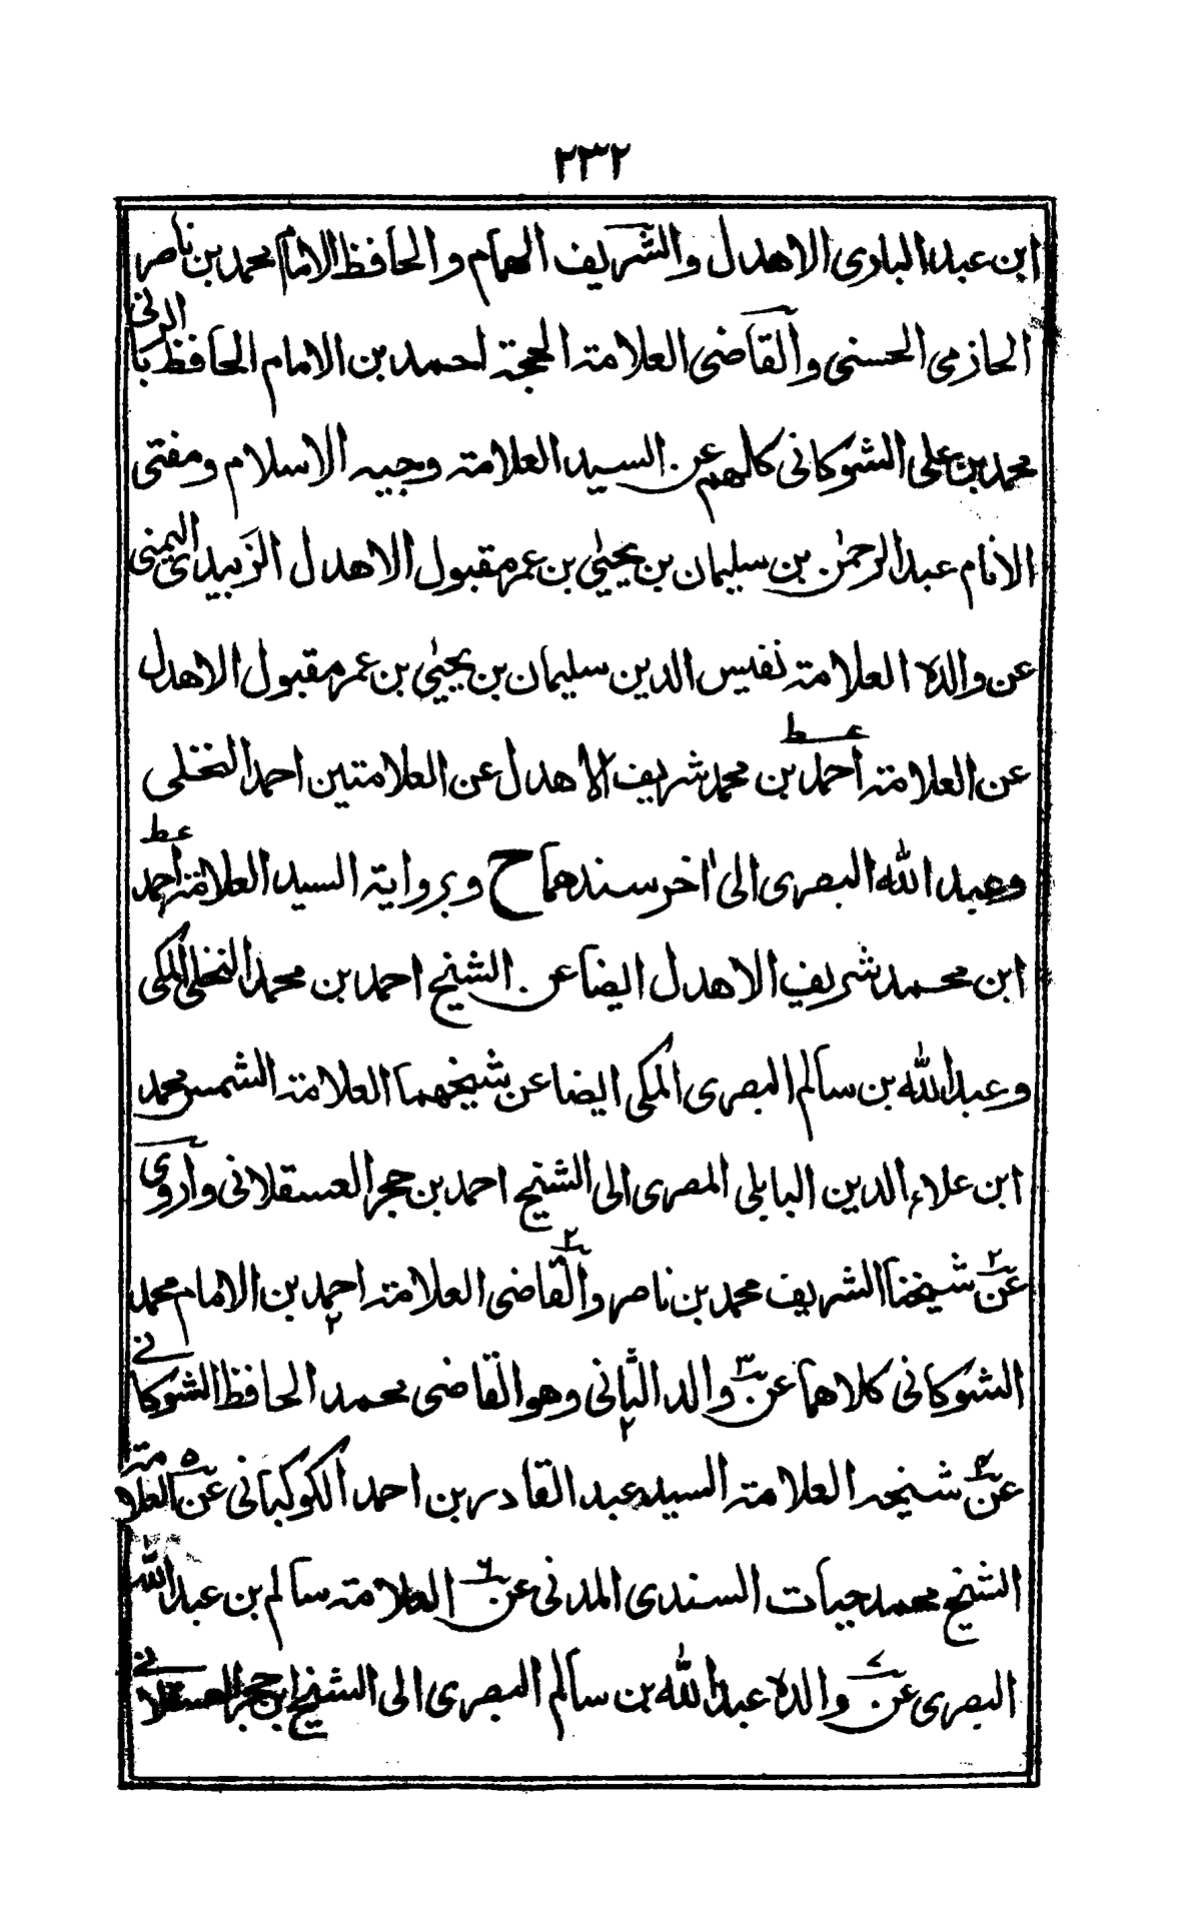 ٢٣٢
ابن عبد البارى الاهدل والشريف الهمام والحافظ الامام محمد بن ناصر
الحازمى الحسنى والقاضى العلامة الحجة احمد بن الامام الحافظ الربانى
محمد بن على الشوكانى كلهم عن السيد العلامة وجيه الاسلام ومفتى
الانام عبد الرحمٰن بن سليمان بن يحيىٰ بن عمر مقبول الاهدل الزبيدى اليمنى
عن والده العلامة نفيس الدين سليمان بن يحيىٰ بن عمر مقبول الاهدل
عن العلامة احمد بن محمد شريف الاهدل عن العلامتين احمد النخلى
وعبد الله البصرى الى اٰخر سندهما ح وبرواية السيد العلامة احمد
ابن محمد شريف الاهدل ايضا عن الشيخ احمد بن محمد النخلى المكى
وعبد الله بن سالم البصرى المكى ايضا عن شيخهما العلامة الشمس محمد
ابن علاء الدين البابلى المصرى الى الشيخ احمد بن حجر العسقلانى واروى
عن٢ شيخنا الشريف محمد بن ناصر والقاضى٢ العلامة احمد٢ بن الامام محمد
الشوكانى كلاهما عن٣ والد الثانى٢ وهو القاضى محمد الحافظ الشوكانى
عن٤ شيخه العلامة السيد عبد القادر بن احمد الكوكبانى عن٥ العلامة
الشيخ محمد حيات السندى المدنى عن٦ العلامة سالم بن عبد الله
البصرى عن٧ والده عبد الله بن سالم البصرى الى الشيخ ابن حجر العسقلانى